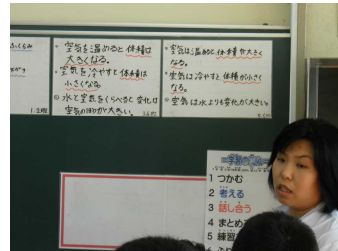 ・空気を温めると体積は
大きくなる。
・空気を冷やすと体積は
小さくなる
◎水と空気をくらべると変化は
空気のほうが大きい。
・空気は温めると体積が大きく
なる。
・空気は冷やすと体積が小さく
なる。
◎空気は水よりも変化が大きい。
1 つかむ
2 考える
3 話し合う
4 まとめ
5 練習